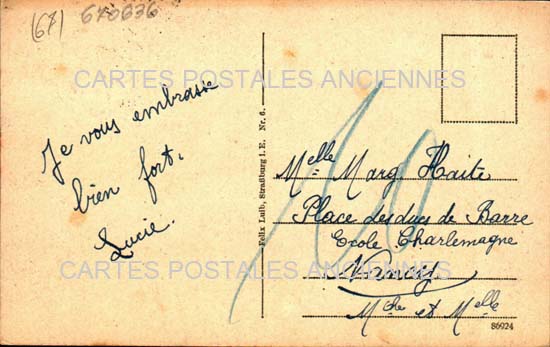 (67) 670636
CARTES POSTALES ANCIENNES
Je vous embrasse
bien fort.
Lucie.
Felix Luib, Straßburg i. E. Nr. 6.
Melle Marg Haite
Place des ducs de Barre
Ecole Charlemagne
Nancy
Mthe et Melle
CARTES POSTALES ANCIENNES
86924